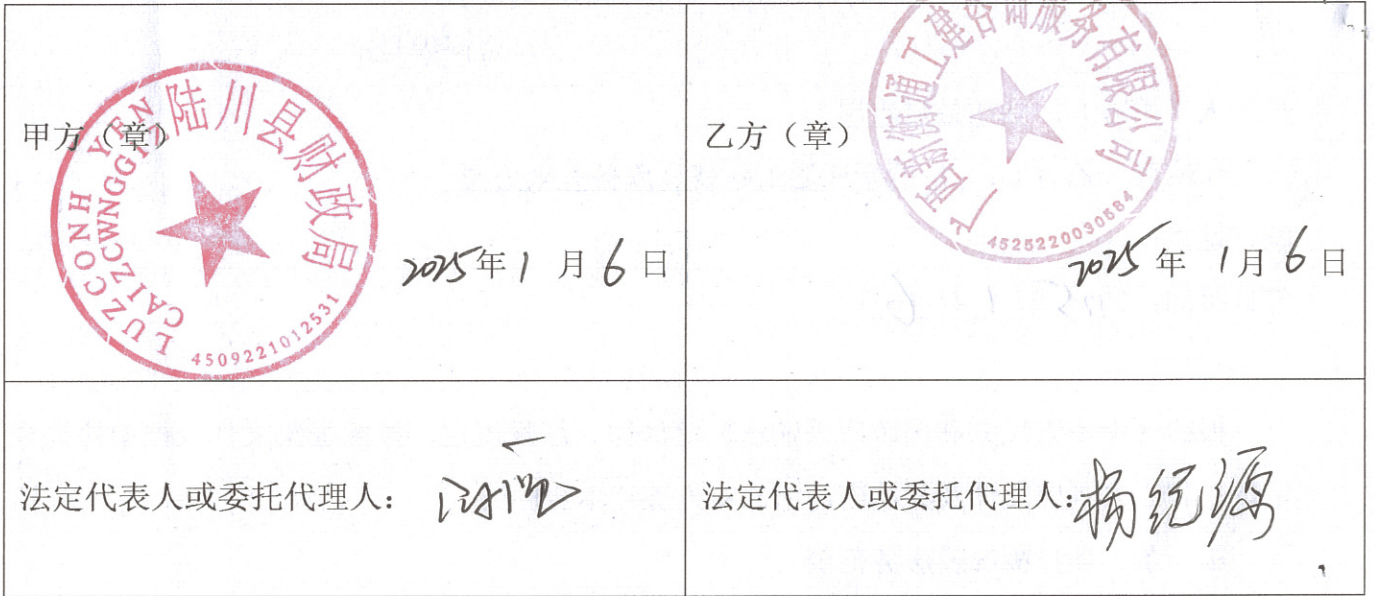 甲方（章）
陆川县财政局
LUZCONH YEN
CAIZCWNGGIZ
4509221012531
2025年1月6日
乙方（章）
广西新衡通工建咨询服务有限公司
4525220030584
2025年1月6日
法定代表人或委托代理人：
法定代表人或委托代理人：杨统源